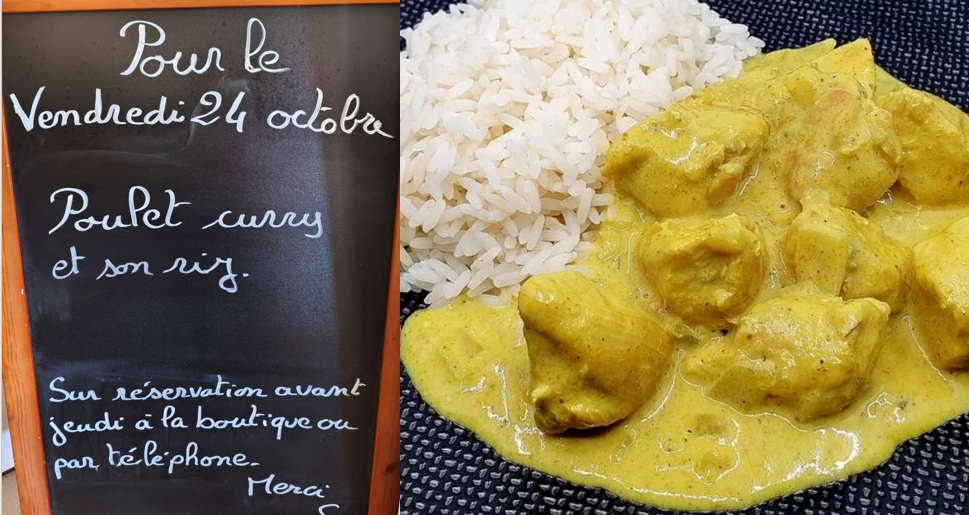 Pour le
Vendredi 24 octobre
Poulet curry
et son riz.
Sur réservation avant
jeudi à la boutique ou
par téléphone.
Merci